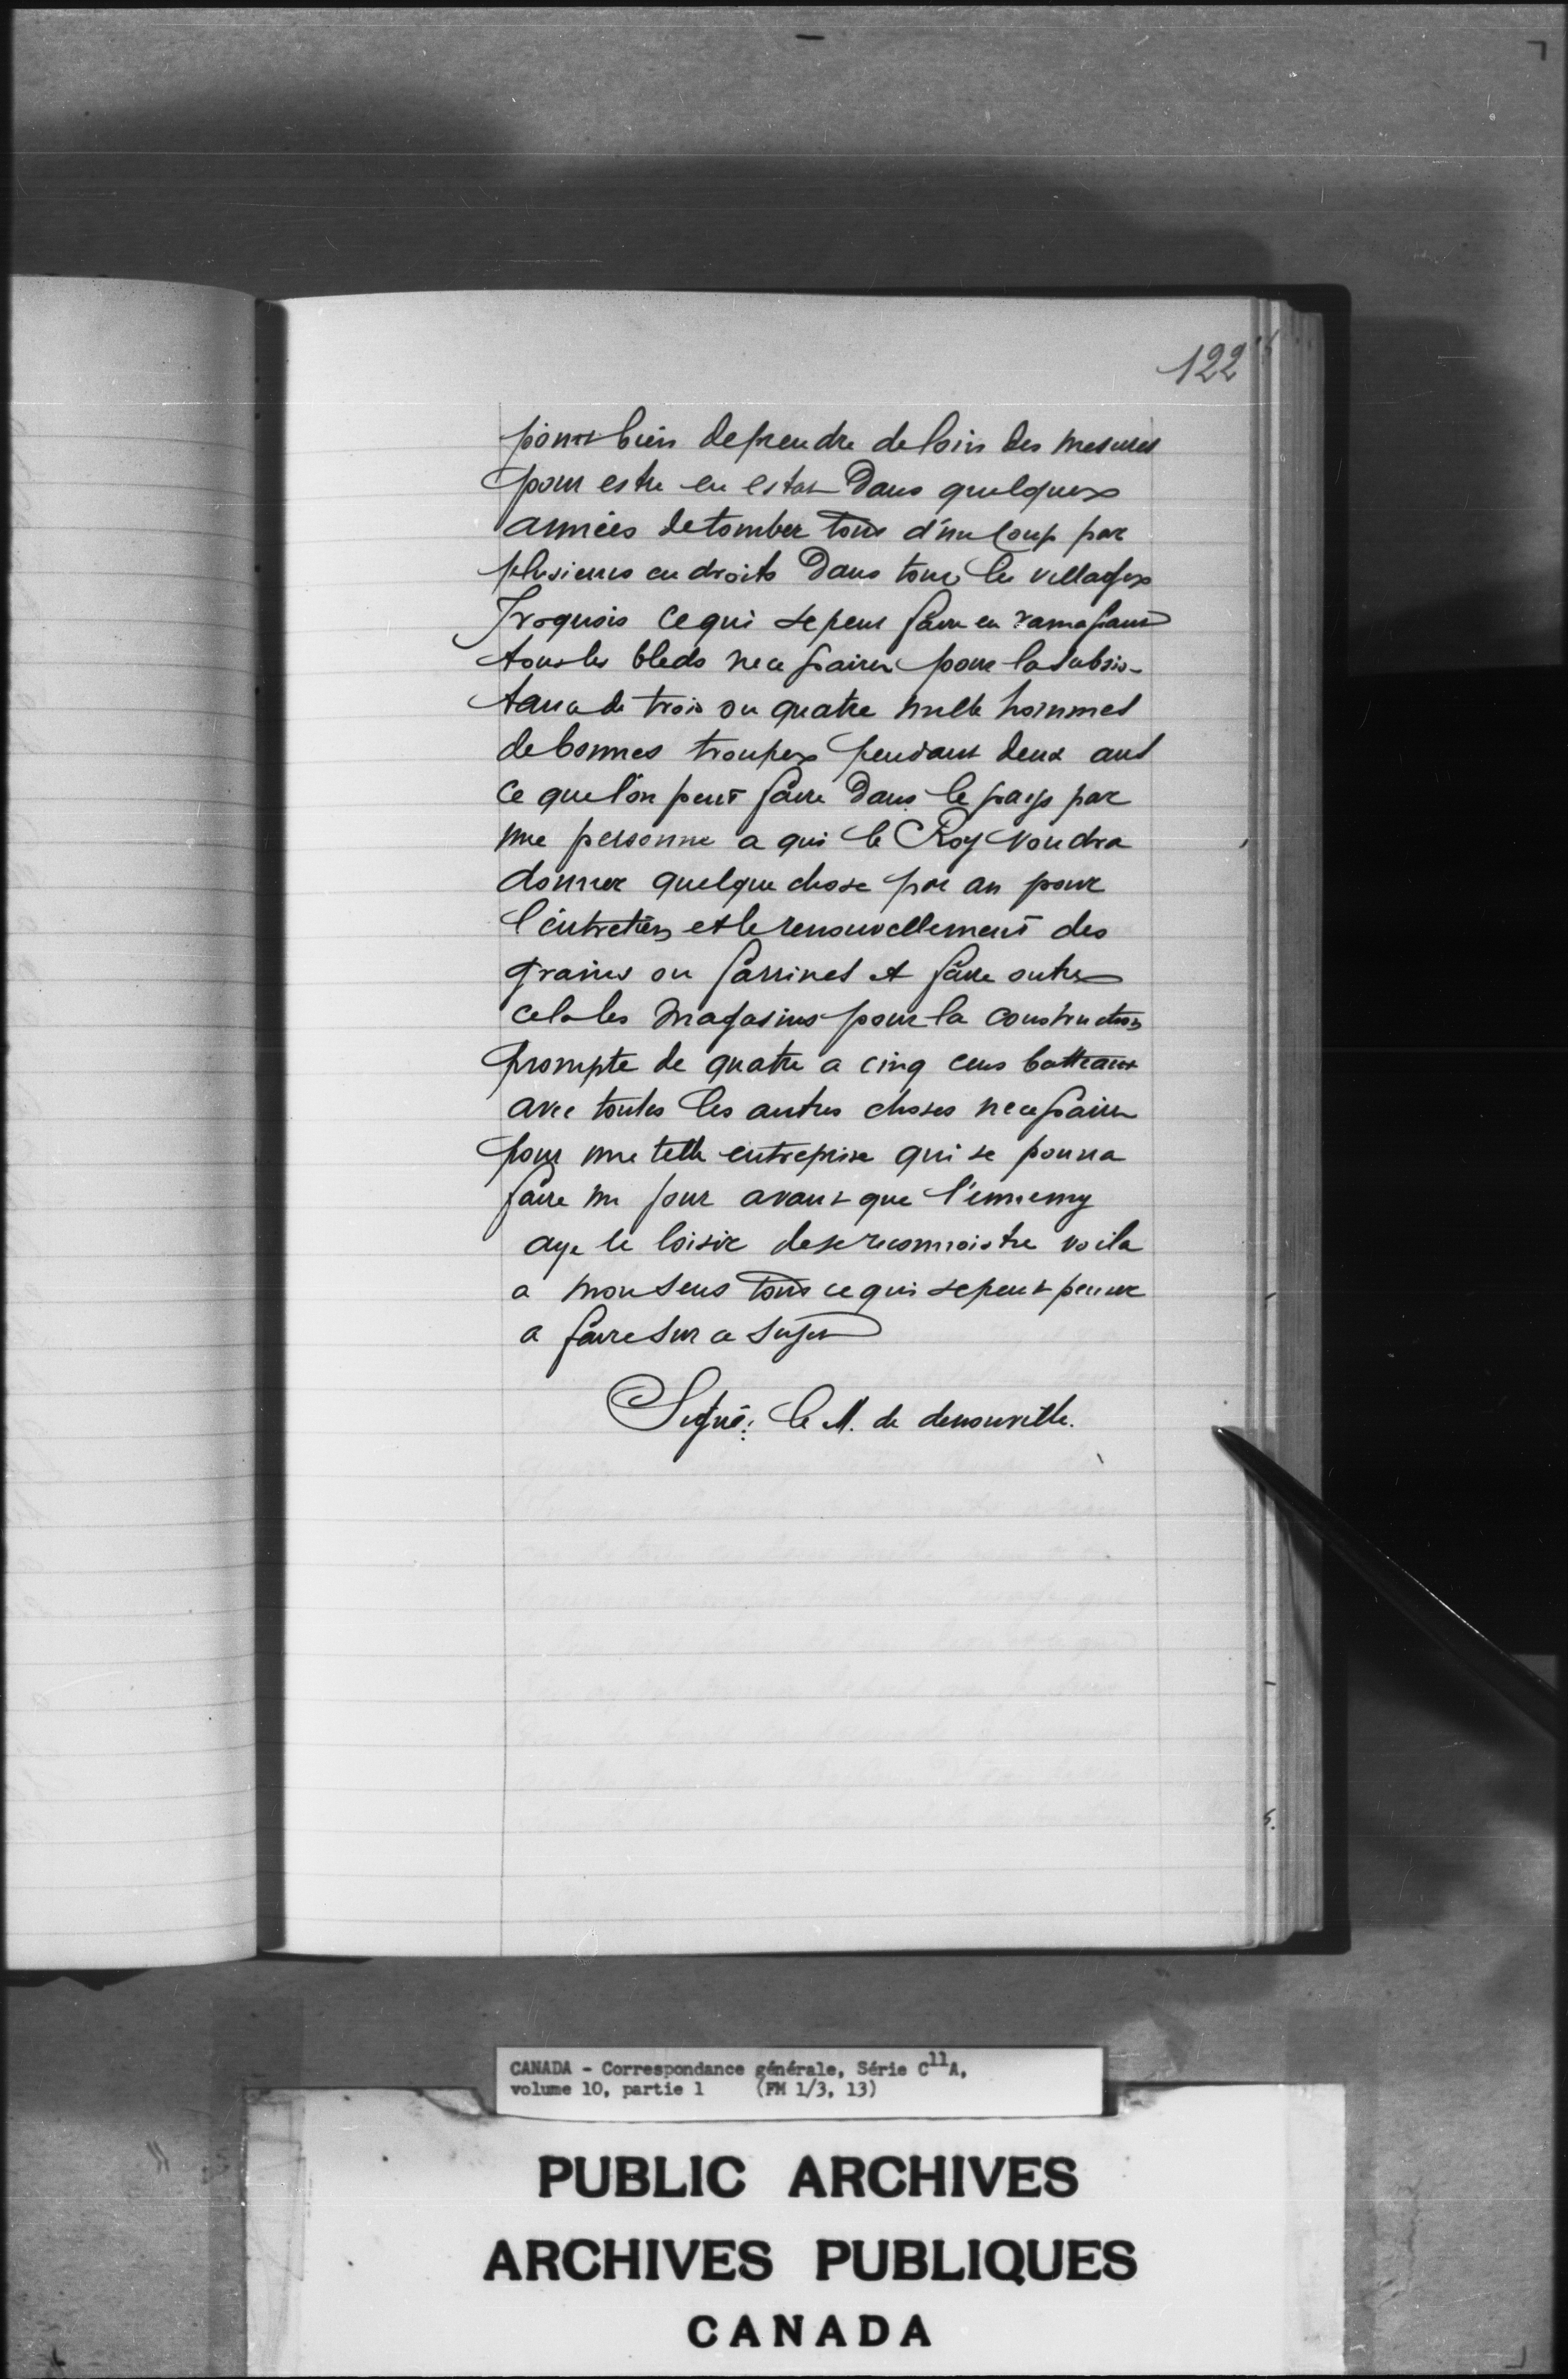 122
point bien de prendre de loin des mesures
pour estre en estat dans quelques
années de tomber tout d'un coup par
plusieurs endroits dans tous les villages
Iroquois ce qui se peut faire en ramassant
tous les bleds necessaires pour la subsis-
tance de trois ou quatre mille hommes
de bonnes troupes pendant deux ans
ce que l'on peut faire dans le pays par
une personne a qui le Roy voudra
donner quelque chose par an pour
l'entretien et le renouvellement des
grains ou farrines et faire outre
cela les magasins pour la construction
prompte de quatre a cinq cens batteaux
avec toutes les autres choses necessaires
pour une telle entreprise qui se pourra
faire un jour avant que l'ennemy
aye le loisir de se reconnoistre voila
a mon sens tout ce qui se peut penser
a faire sur ce sujet
Signé: le M. de denonville.
CANADA - Correspondance générale, Série C11A,
volume 10, partie 1 (FM 1/3, 13)
PUBLIC ARCHIVES
ARCHIVES PUBLIQUES
CANADA